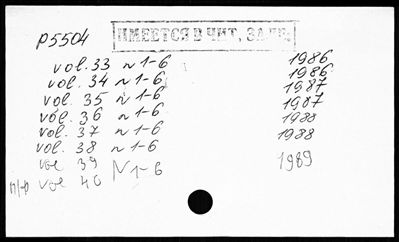 р5504
ИМЕЕТСЯ В ЧИТ. ЗАЛЕ.
vol. 33 N 1-6 1986
vol. 34 N 1-6 1986
vol. 35 N 1-6 1987
vol. 36 N 1-6 1987
vol. 37 N 1-6 1988
vol. 38 N 1-6 1988
vol 39 N 1-6 1989
п/р vol 40